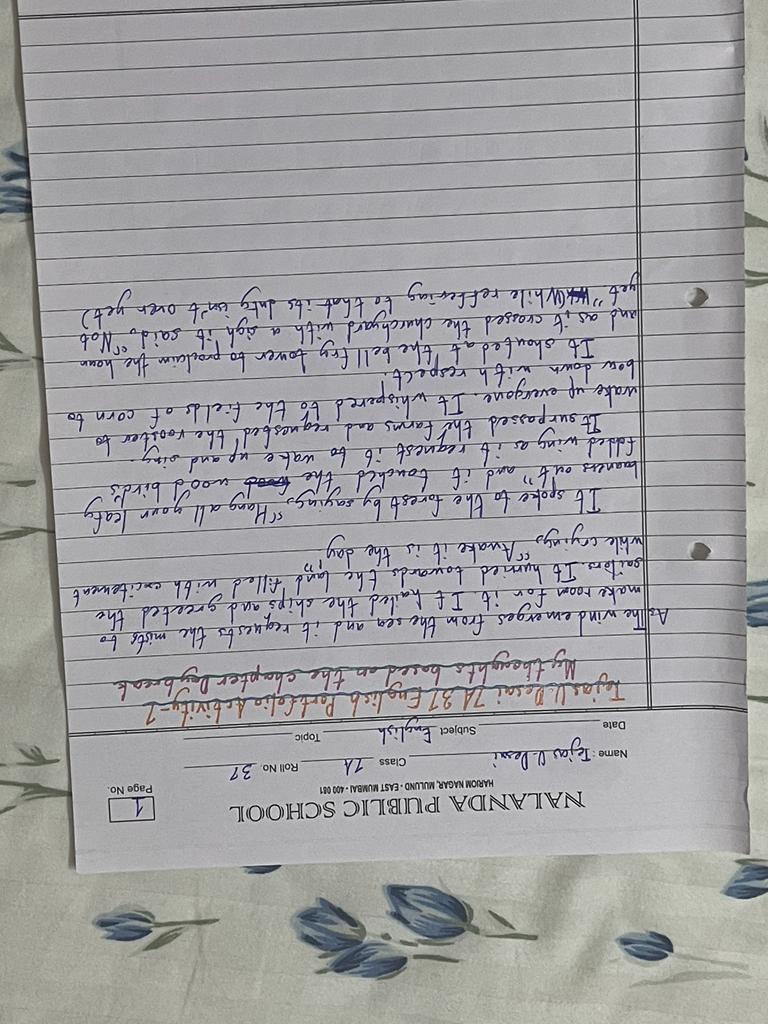 NALANDA PUBLIC SCHOOL
HARIOM NAGAR, MULUND - EAST MUMBAI - 400 081
1
Page No.
Name : Tejas U. Desai Class 7A Roll No. 37
Date Subject English Topic
Tejas U. Desai 7A 37 English Portfolio Activity-1
My thoughts based on the chapter Daybreak
As The wind emerges from the sea and it requests the mists to
make room for it. It hailed the ships and greeted the
sailors. It hurried towards the land filled with excitement
while crying, "Awake it is the day!"
It spoke to the forest by saying, "Hang all your leafy
banners out" and it touched the wood bird's
folded wing as it request it to wake up and sing.
It surpassed the farms and requested the rooster to
wake up everyone. It whispered to the fields of corn to
bow down with respect.
It shouted at the bell fry tower to proclaim the hour
and as it crossed the churchyard with a sigh it said, "Not
yet" (While reffering to that its duty isn't over yet)